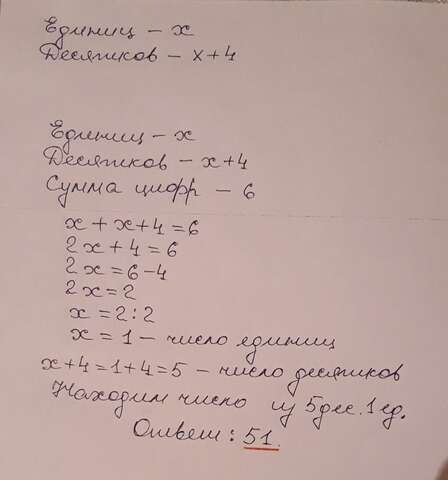 Единиц – x
Десятков – x+4
Единиц – x
Десятков – x+4
Сумма цифр – 6
x + x+4=6
2x+4=6
2x=6-4
2x=2
x=2:2
x=1 – число единиц
x+4=1+4=5 – число десятков
Находим число из 5дес.1ед.
Ответ: 51.